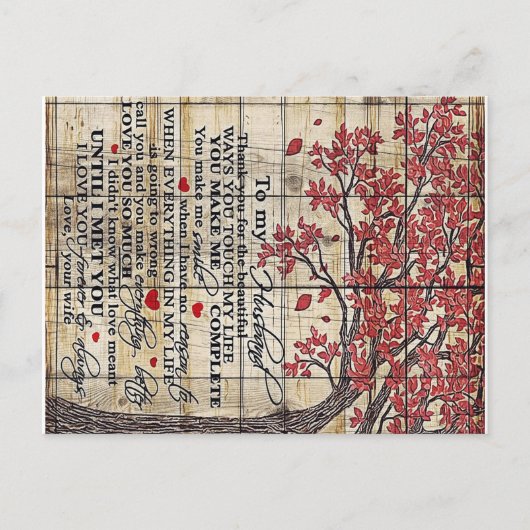 To my Husband
Thank you for the beautiful
WAYS YOU TOUCH MY LIFE
YOU MAKE ME COMPLETE
You make me smile
when I have no reason to
WHEN EVERYTHING IN MY LIFE
is going to wrong
call you and you make everything
LOVE YOU SO MUCH
I didn't know what love meant
UNTIL I MET YOU
I LOVE YOU forever & always
Love, your wife